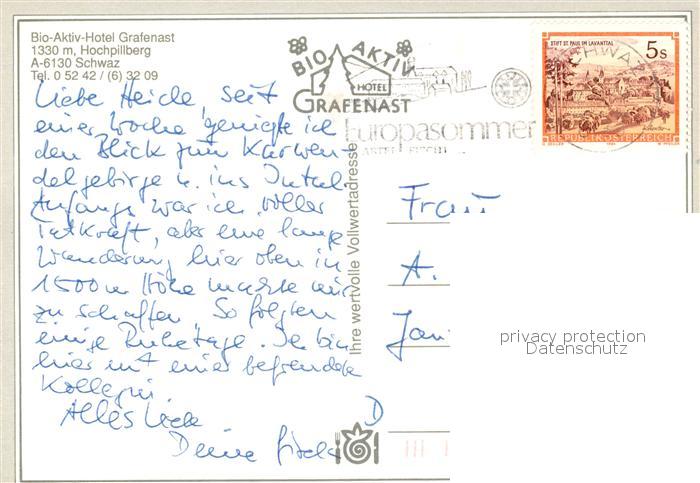 Bio-Aktiv-Hotel Grafenast
1330 m, Hochpillberg
A-6130 Schwaz
Tel. 0 52 42 / (6) 32 09
BIO-AKTIV
HOTEL
GRAFENAST
Europasommer
STIFT ST. PAUL IM LAVANTTAL
5s
REPUBLIK ÖSTERREICH
Liebe Heide, seit
einer Woche genieße ich
den Blick zum Karwen-
delgebirge u. ins Inntal.
Anfangs war ich voller
Tatkraft, aber eine lange
Wanderung hier oben in
1500 m Höhe machte mir
zu schaffen. So folgten
einige Ruhetage. Ich bin
hier mit einer befreundeten
Kollegin
Alles Liebe
Deine
Ihre wertvolle Vollwertadresse
Frau
A.
Jan
D
privacy protection
Datenschutz